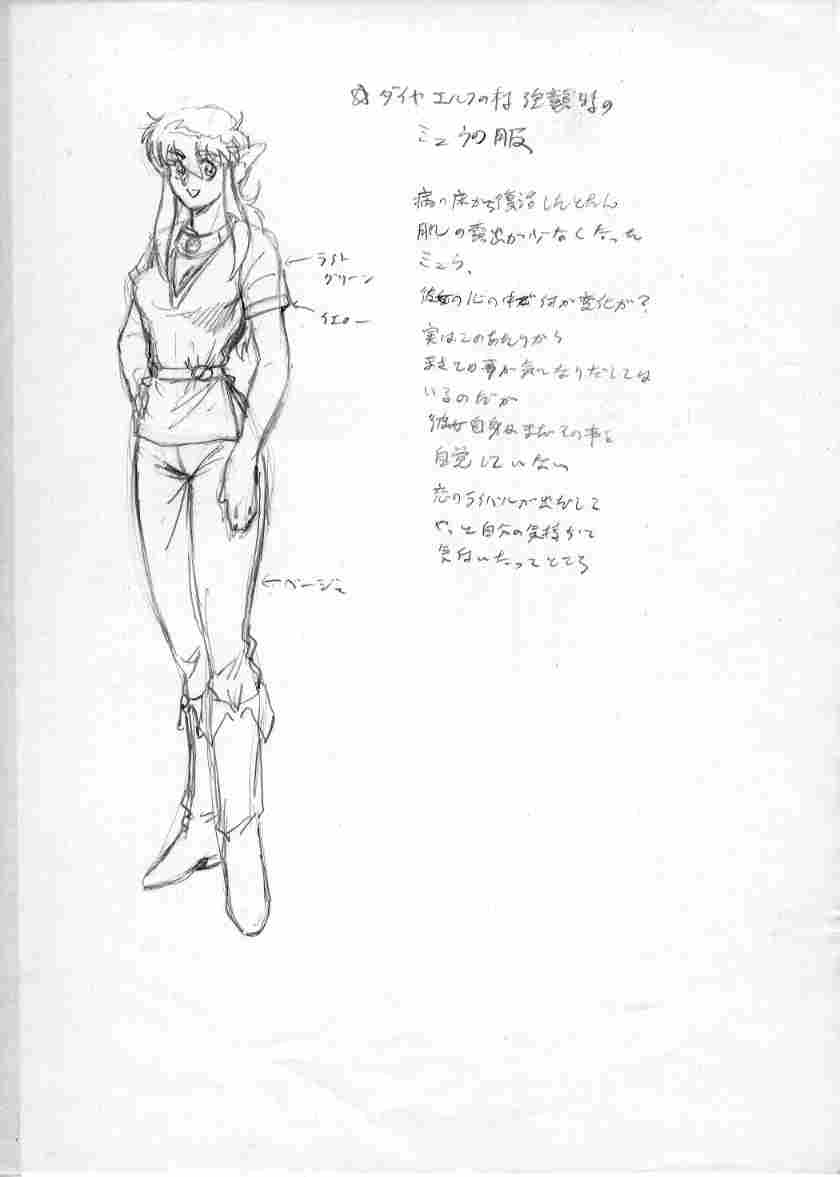 ☆ ダイヤ エルフの村 強襲時の
ミュラの服
病の床から復活したとたん
肌の露出が少なくなった
ミュラ、
彼女の心の中で何か変化が?
実はこのあたりから
の事が気になりだしては
いるのだが
彼女自身はまだその事を
自覚していない
恋のライバルが出現して
やっと自分の気持ちに
気付いたってところ
ライト
グリーン
イエロー
ベージュ